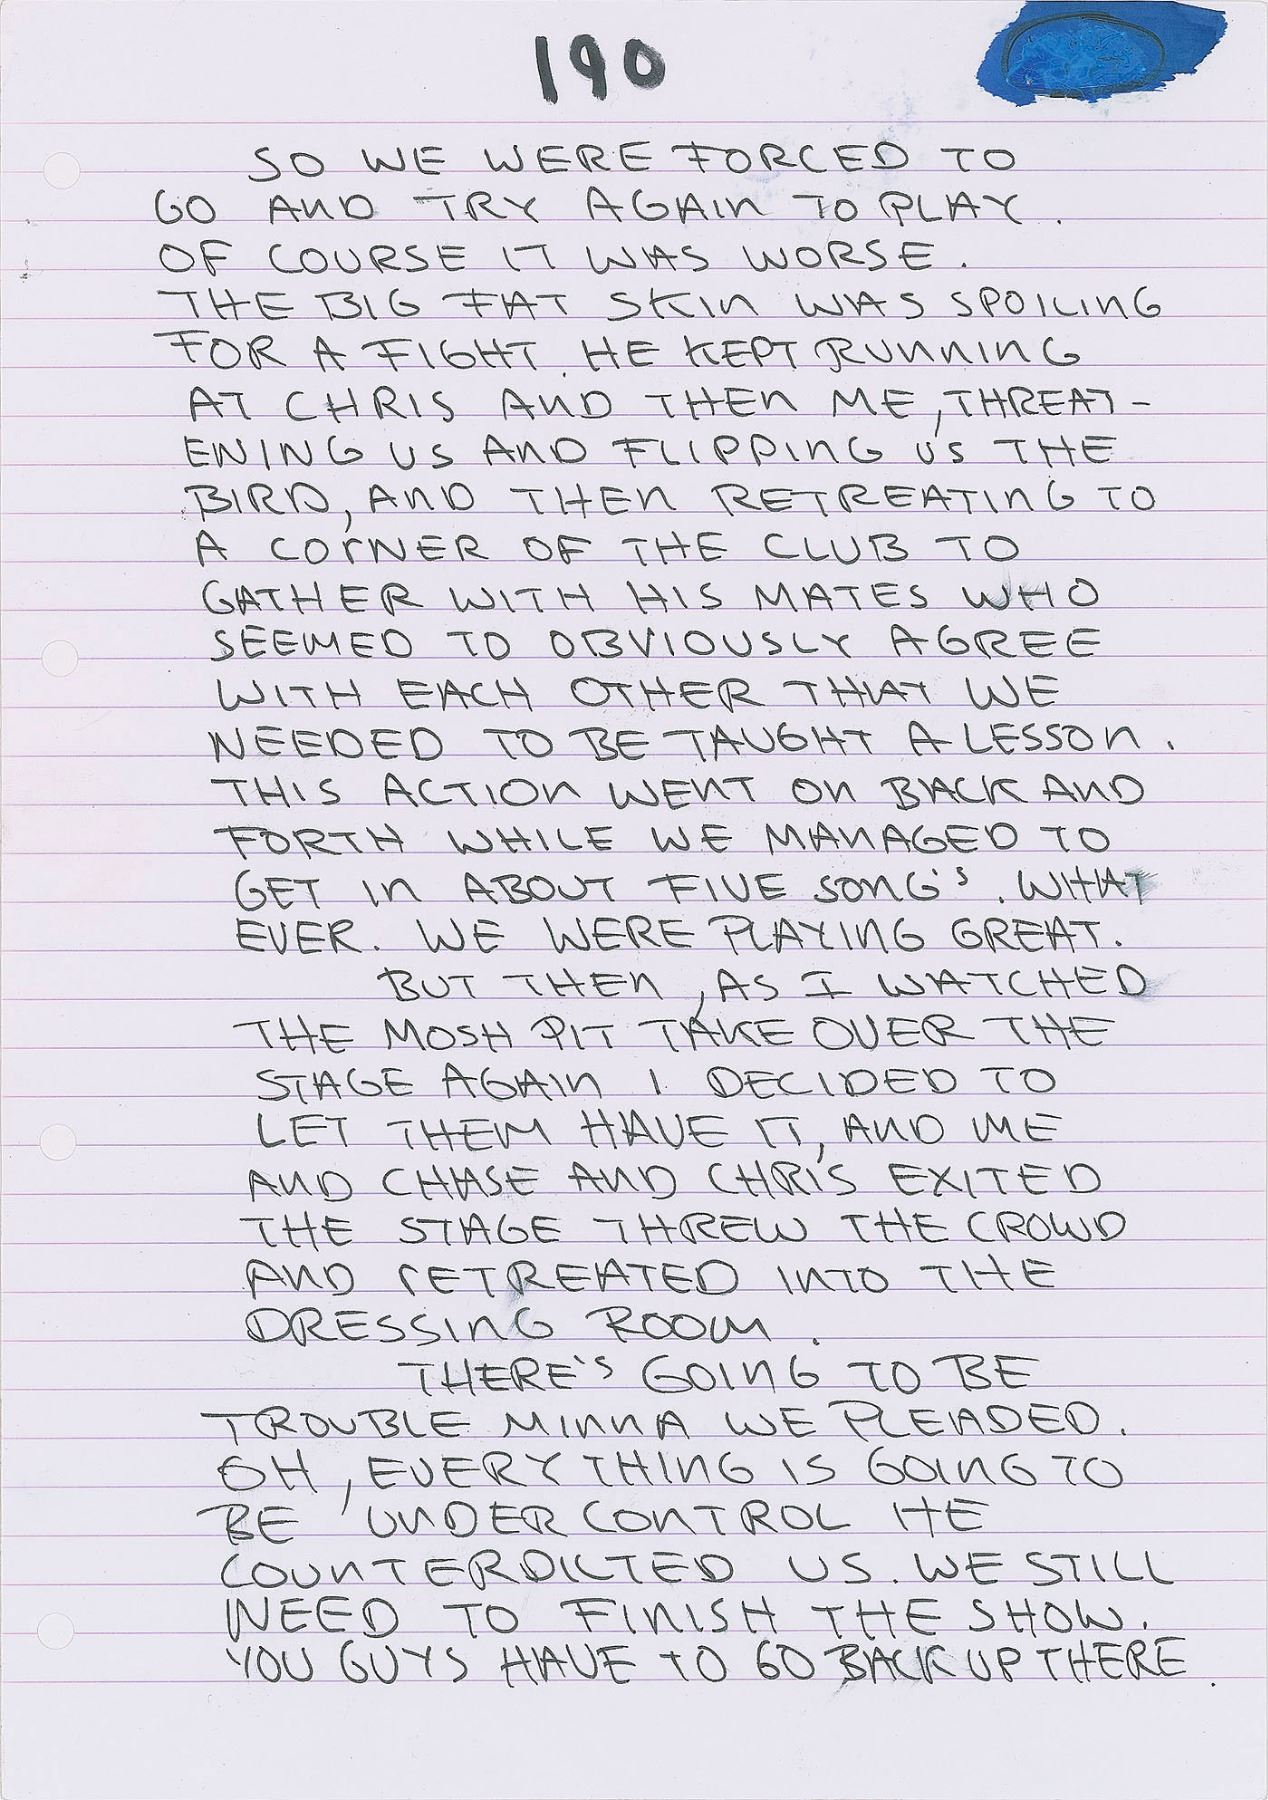 190
SO WE WERE FORCED TO
GO AND TRY AGAIN TO PLAY.
OF COURSE IT WAS WORSE.
THE BIG FAT SKIN WAS SPOILING
FOR A FIGHT. HE KEPT RUNNING
AT CHRIS AND THEN ME, THREAT-
ENING US AND FLIPPING US THE
BIRD, AND THEN RETREATING TO
A CORNER OF THE CLUB TO
GATHER WITH HIS MATES WHO
SEEMED TO OBVIOUSLY AGREE
WITH EACH OTHER THAT WE
NEEDED TO BE TAUGHT A LESSON.
THIS ACTION WENT ON BACK AND
FORTH WHILE WE MANAGED TO
GET IN ABOUT FIVE SONG'S. WHAT
EVER. WE WERE PLAYING GREAT.
BUT THEN, AS I WATCHED
THE MOSH PIT TAKE OVER THE
STAGE AGAIN I DECIDED TO
LET THEM HAVE IT, AND ME
AND CHASE AND CHRIS EXITED
THE STAGE THREW THE CROWD
AND RETREATED INTO THE
DRESSING ROOM.
THERE'S GOING TO BE
TROUBLE MINNA WE PLEADED.
OH, EVERYTHING IS GOING TO
BE UNDER CONTROL HE
COUNTERDICTED US. WE STILL
NEED TO FINISH THE SHOW.
YOU GUYS HAVE TO GO BACK UP THERE.